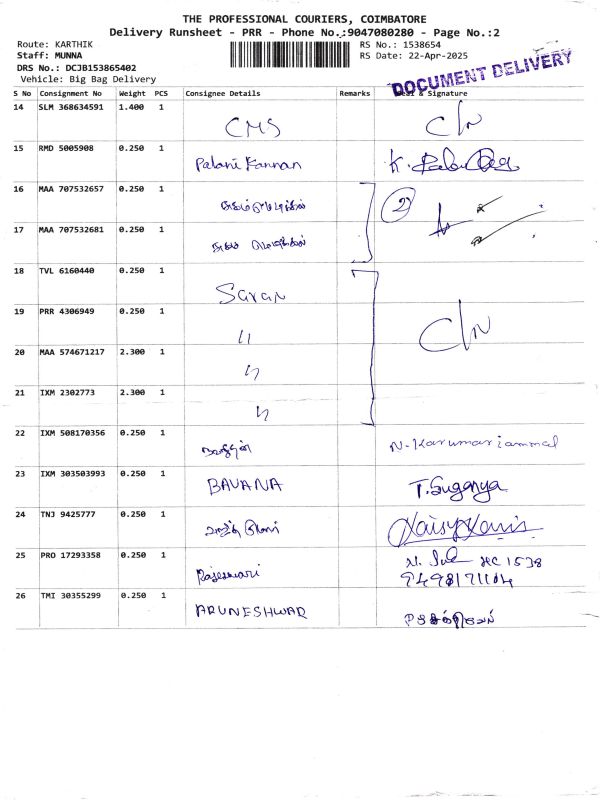 THE PROFESSIONAL COURIERS, COIMBATORE
Delivery Runsheet - PRR - Phone No.:9047080280 - Page No.:2
Route: KARTHIK
RS No.: 1538654
Staff: MUNNA
RS Date: 22-Apr-2025
DRS No.: DCJB153865402
Vehicle: Big Bag Delivery
DOCUMENT DELIVERY
S No Consignment No Weight PCS Consignee Details Remarks & Signature
14 SLM 368634591 1.400 1 CMS C/N
15 RMD 5005908 0.250 1 Palani Kannan K.
16 MAA 707532657 0.250 1 2
17 MAA 707532681 0.250 1
18 TVL 6160440 0.250 1 Saran
19 PRR 4306949 0.250 1 11 C/N
20 MAA 574671217 2.300 1
21 IXM 2302773 2.300 1
22 IXM 508170356 0.250 1 N. Karumariammal
23 IXM 303503993 0.250 1 BAVANA T.Suganya
24 TNJ 9425777 0.250 1
25 PRO 17293358 0.250 1 Rajeswari HC 1538
9498171104
26 TMI 30355299 0.250 1 ARUNESHWAR